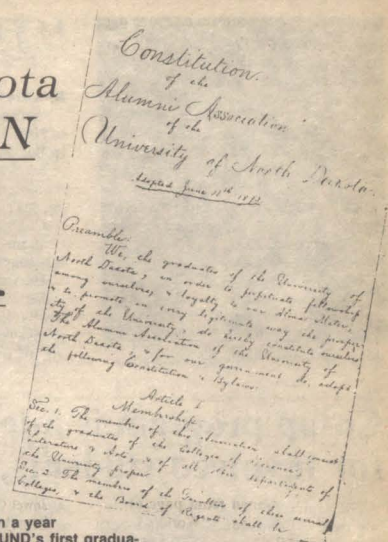 ota
N
Constitution.
of the
Alumni Association
of the
University of North Dakota.
Adopted June 11th
Preamble:
We, the graduates of the University of
North Dakota, in order to perpetuate fellowship
among ourselves, & loyalty to our Alma Mater,
& to promote in every legitimate way the prosper-
ity of the University, do hereby constitute ourselves
The Alumni Association of the University of
North Dakota, & for our government do adopt
the following Constitution & Bylaws.
Article I
Membership
Sec. 1. The members of this Association shall consist
of the graduates of the Colleges of Science,
Literature & Arts, & of all the departments of
the University proper
Sec. 2. The members of the Faculties of these several
Colleges, & the Board of Regents shall be
n a year
UND's first gradua-